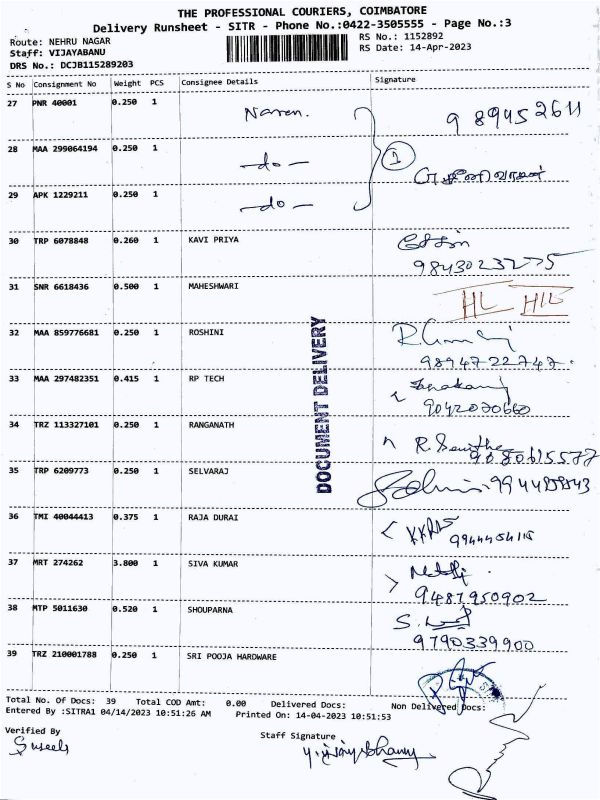 THE PROFESSIONAL COURIERS, COIMBATORE
Delivery Runsheet - SITR - Phone No.:0422-3505555 - Page No.:3
Route: NEHRU NAGAR
Staff: VIJAYABANU
DRS No.: DCJB115289203
RS No.: 1152892
RS Date: 14-Apr-2023
S No Consignment No Weight PCS Consignee Details Signature
27 PNR 40001 0.250 1 Naren. 9 89452611
28 MAA 299064194 0.250 1 -do- 1
29 APK 1229211 0.250 1 -do-
30 TRP 6078848 0.260 1 KAVI PRIYA
9843023275
31 SNR 6618436 0.500 1 MAHESHWARI HL HIL
32 MAA 859776681 0.250 1 ROSHINI
9894722747.
33 MAA 297482351 0.415 1 RP TECH
9042070660
34 TRZ 113327101 0.250 1 RANGANATH R.
9080615577
35 TRP 6209773 0.250 1 SELVARAJ
36 TMI 40044413 0.375 1 RAJA DURAI
37 MRT 274262 3.800 1 SIVA KUMAR
9487950902
38 MTP 5011630 0.520 1 SHOUPARNA S.
9790339900
39 TRZ 210001788 0.250 1 SRI POOJA HARDWARE
DOCUMENT DELIVERY
Total No. Of Docs: 39 Total COD Amt: 0.00 Delivered Docs: Non Delivered Docs:
Entered By :SITRA1 04/14/2023 10:51:26 AM Printed On: 14-04-2023 10:51:53
Verified By
Staff Signature